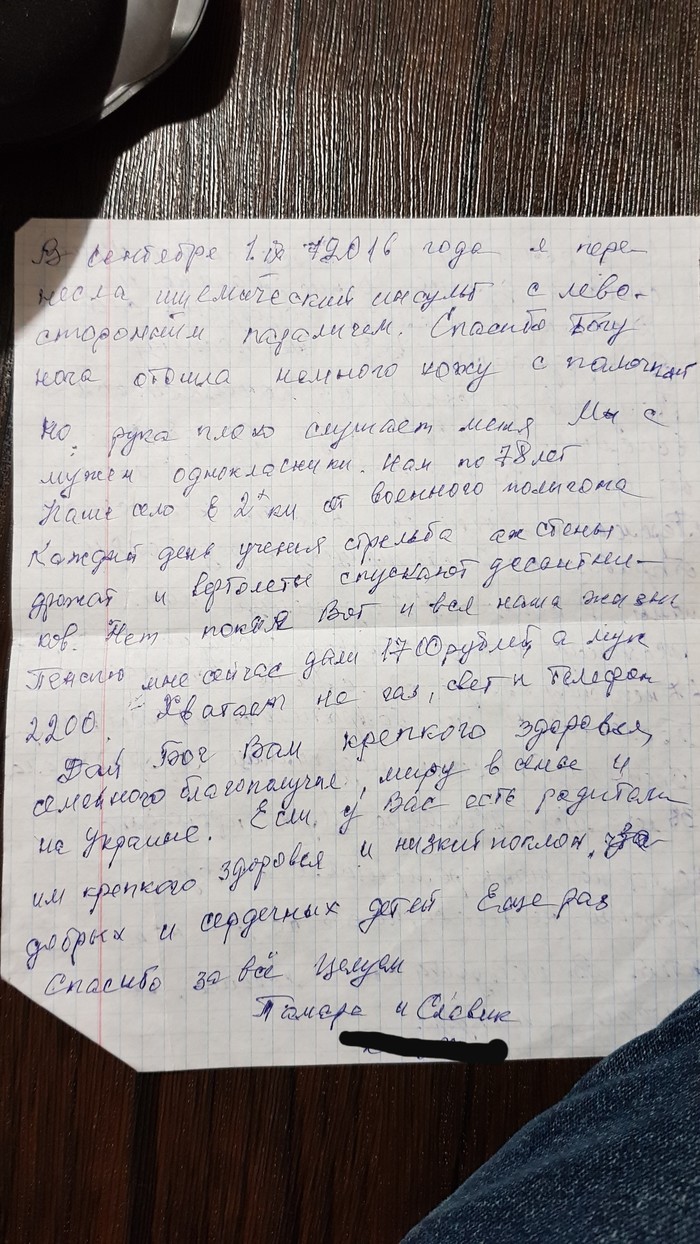 В сентябре 1.IX 2016 года я пере-
несла ишемический инсульт с лево-
стороннім паралічем. Спасибо Богу
нога отошла немного хожу с палочкой
но рука плохо слушает меня Мы с
мужем однокласники. Нам по 78 лет
Наше село в 2х км от военного полигона
Каждый день учения стрельба аж стены
дрожат и вертолеты спускают десантни-
ков. Нет покоя Вот и вся наша жизнь
Пенсию мне сейчас дали 1700 рублей, а муж
2200. Хватает на газ, свет и телефон
Дай Бог Вам крепкого здоровья,
семейного благополучия, миру в семье и
на Украине. Если у Вас есть родители
им крепкого здоровья и низкий поклон, за
добрых и сердечных детей Еще раз
Спасибо за всё Целуем
Тамара и Славик